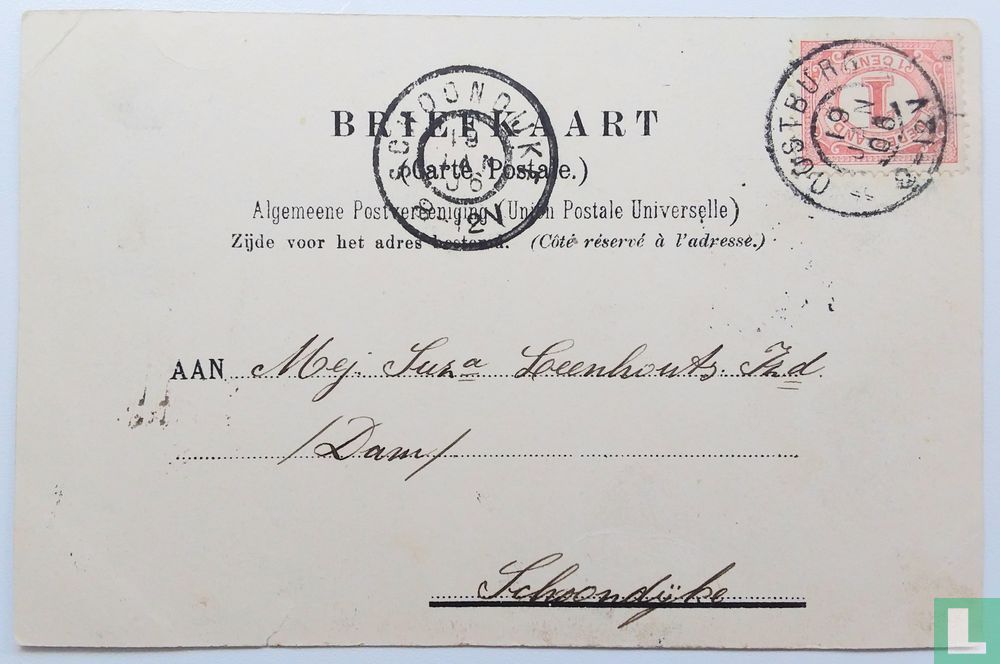 BRIEFKAART
(Carte Postale.)
Algemeene Postvereeniging (Union Postale Universelle)
Zijde voor het adres bestemd. (Côté réservé à l'adresse.)
AAN Mej. Suza Leenhouts Izd.
/Dam/
Schoondijke
SCHOONDIJKE
19
JAN
06
8-12V
OOSTBURG
19
JAN
06
1 CENT
1
NEDERLAND
L